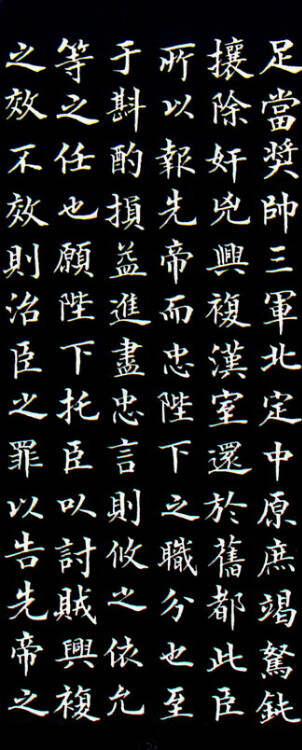 足當獎帥三軍北定中原庶竭駑鈍
攘除奸兇興複漢室還於舊都此臣
所以報先帝而忠陛下之職分也至
于斟酌損益進盡忠言則攸之依允
等之任也願陛下托臣以討賊興複
之效不效則治臣之罪以告先帝之